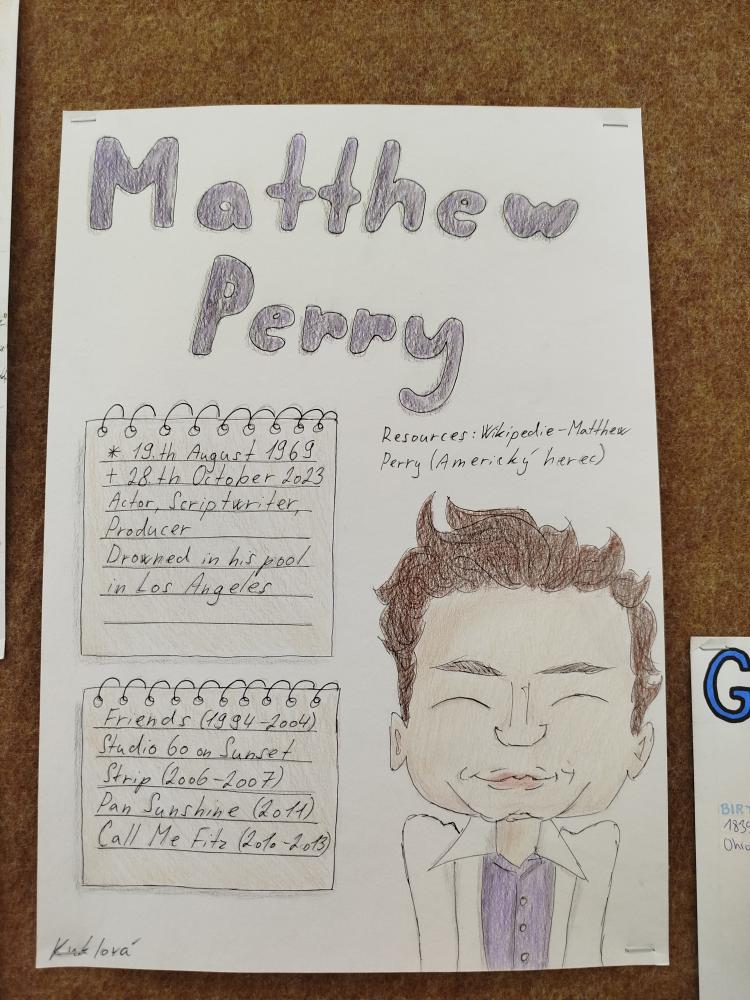 Matthew
Perry
* 19.th August 1969
+ 28.th October 2023
Actor, Scriptwriter,
Producer
Drowned in his pool
in Los Angeles
Resources: Wikipedie-Matthew
Perry (Americký herec)
Friends (1994-2004)
Studio 60 on Sunset
Strip (2006-2007)
Pan Sunshine (2011)
Call Me Fitz (2010-2013)
Kuklová
G
BIRT
183
Ohio